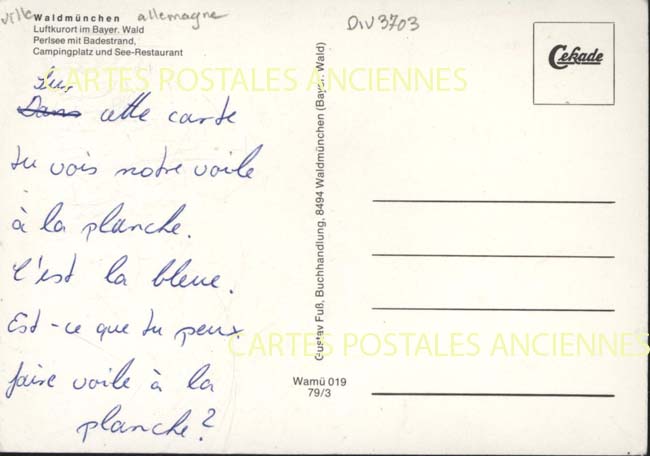 ville allemagne
DIV 3703
Waldmünchen
Luftkurort im Bayer. Wald
Perlsee mit Badestrand,
Campingplatz und See-Restaurant
Cekade
CARTES POSTALES ANCIENNES
Sur
Dans cette carte
tu vois notre voile
à la planche.
C'est la bleue.
Est-ce que tu peux
faire voile à la
planche?
Gustav Fuß, Buchhandlung, 8494 Waldmünchen (Bayer. Wald)
CARTES POSTALES ANCIENNES
Wamü 019
79/3